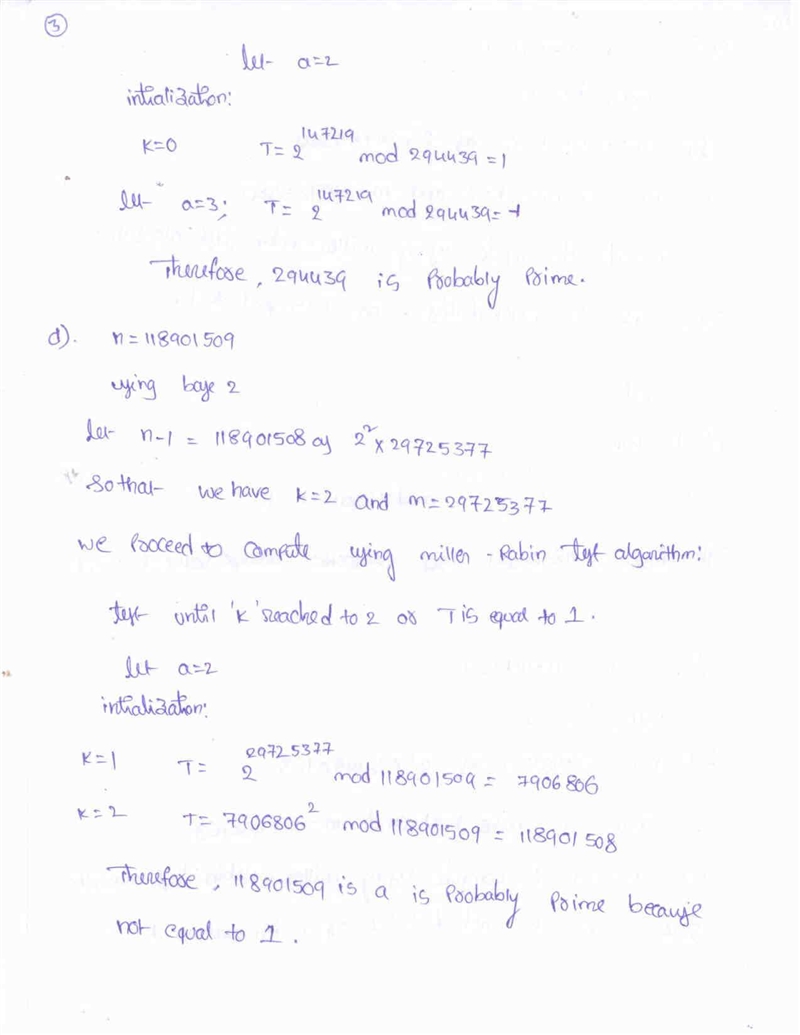 3
let a=2
intialization:
K=0 T= 2^147219 mod 294439 = 1
let a=3; T= 2^147219 mod 294439= -1
Therefore, 294439 is Probably Prime.
d). n = 118901509
using base 2
let n-1 = 118901508 as 2^2 x 29725377
So that we have k=2 and m=29725377
we Proceed to Compute using miller - Rabin test algorithm:
test until 'k' reached to 2 or T is equal to 1.
let a=2
intialization:
K=1 T= 2^29725377 mod 118901509 = 7906806
K=2 T= 7906806^2 mod 118901509 = 118901508
Therefore, 118901509 is a is Probably Prime because
not equal to 1.